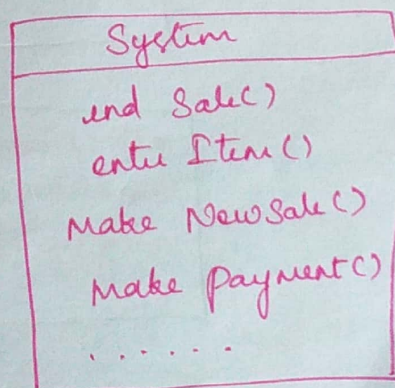 System
end Sale()
enter Item()
Make NewSale()
Make payment()
......